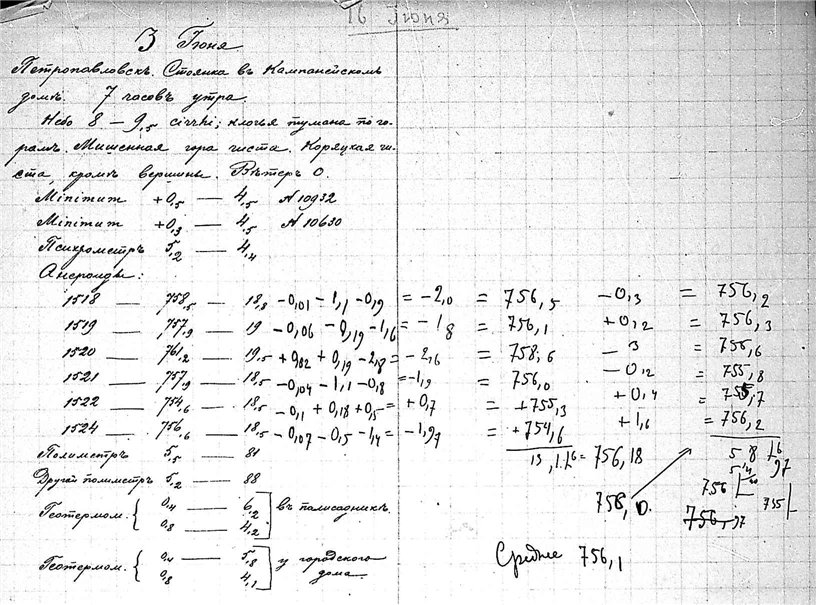 16 Іюня
3 Іюня
Петропавловскъ. Стоянка въ Кампанейскомъ
домѣ. 7 часовъ утра.
Небо 8 – 9,5 cirrhi; клочья тумана по го-
рамъ. Мишенная гора чиста. Коряцкая чи-
ста, кромѣ вершины. Вѣтеръ 0.
Minimum +0,5 — 4,5 N 10932
Minimum +0,3 — 4,5 N 10630
Психрометръ 5,2 — 4,4
Анероиды:
1518 — 758,5 — 18,8 –0,01 – 1,1 – 0,9 = –2,0 = 756,5 –0,3 = 756,2
1519 — 757,9 — 19 –0,06 – 0,19 – 1,6 = –1,8 = 756,1 +0,2 = 756,3
1520 — 761,2 — 19,5 +0,02 + 0,19 – 2,8 = –2,6 = 758,6 – 3 = 755,6
1521 — 757,9 — 18,5 –0,04 – 1,1 – 0,8 = –1,9 = 756,0 –0,2 = 755,8
1522 — 754,6 — 18,5 –0,1 + 0,18 + 0,5 = +0,7 = +755,3 +0,4 = 755,7
1524 — 756,6 — 18,5 –0,07 – 0,5 – 1,4 = –1,97 = +754,6 +1,6 = 756,2
Полиметръ 5,5 — 81
= 756,18
Другой полиметръ 5,2 — 88
756
Геотермом. { 0,4 — 6,2
0,8 — 4,2 ] въ полисадникѣ.
758,0.
755
756,97
Геотермом. { 0,4 — 5,8
0,8 4,1 ] у городского
дома.
Среднее 756,1